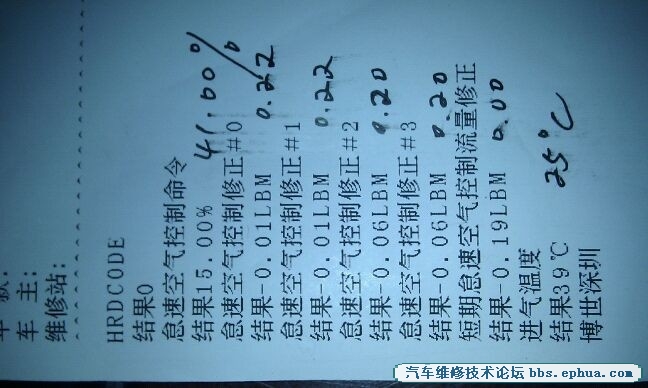 车 款:
车 主:
维修站:
HRDCODE
结果0
怠速空气控制命令
结果15.00% 41.00%
怠速空气控制修正#0
结果-0.01LBM 0.22
怠速空气控制修正#1
结果-0.01LBM 0.22
怠速空气控制修正#2
结果-0.06LBM 0.20
怠速空气控制修正#3
结果-0.06LBM 0.20
短期怠速空气控制流量修正
结果-0.19LBM 0.00
进气温度
结果39℃ 25℃
博世深圳
汽车维修技术论坛 bbs.ephua.com